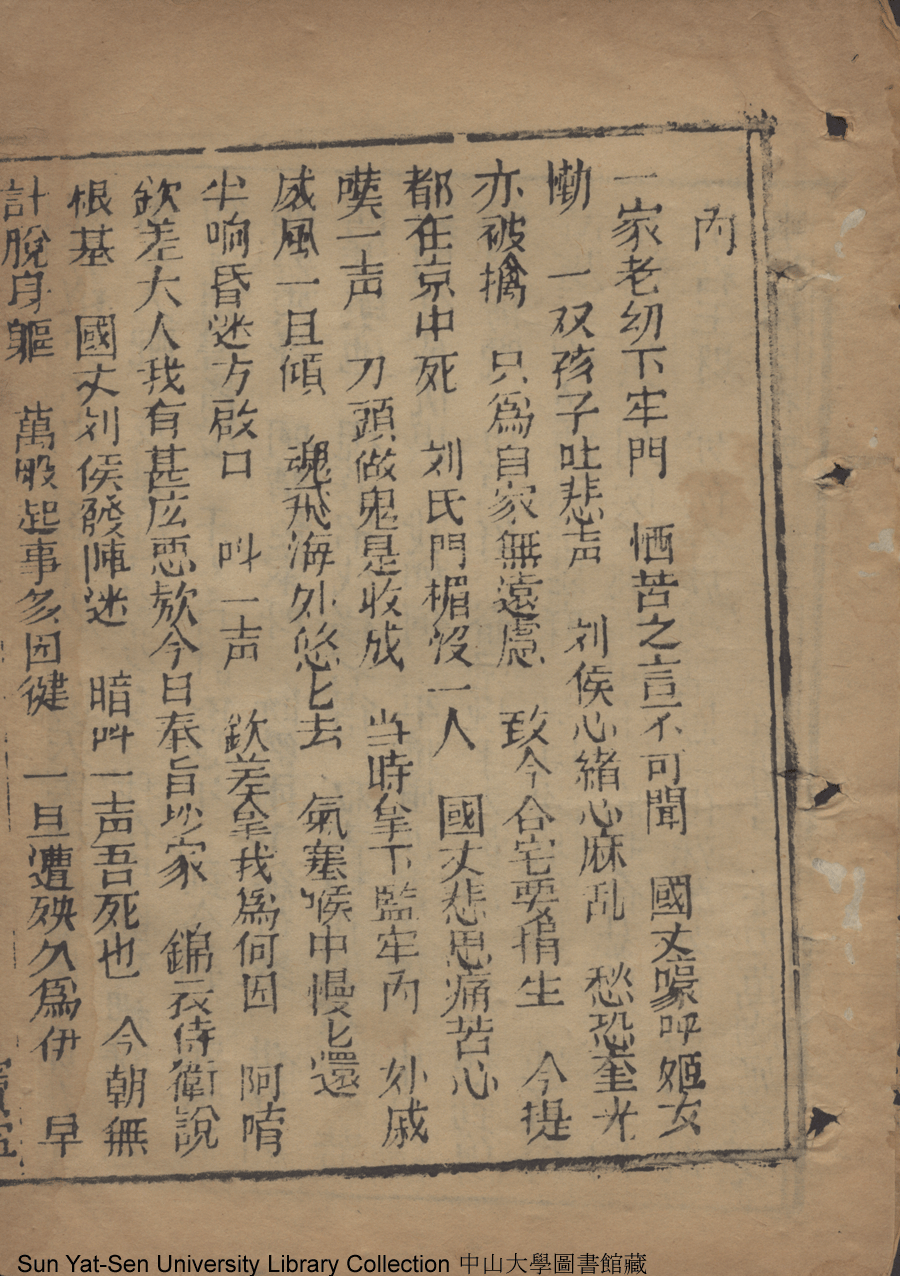 内
一家老幼下牢門 恓苦之言不可聞 國丈嚎呼姬女
慟 一双孩子吐悲声 刘侯心緒心麻乱 愁恐奎光
亦被擒 只為自家無遠慮 致今合宅要捐生 今提
都在京中死 刘氏門楣没一人 國丈悲思痛苦心
嘆一声 刀頭做鬼是收成 当時拿下監牢内 外戚
威風一旦傾 魂飛海外悠匕去 氣塞喉中慢匕還
半响昏迷方啟口 叫一声 欽差拿我為何因 阿唷
欽差大人我有甚広悪欵今日奉旨抄家 錦衣侍衛說
根基 國丈刘侯發陣迷 暗叫一声吾死也 今朝無
計脫身軀 萬般起事多因健 一旦遭殃久為伊 早
Sun Yat-Sen University Library Collection 中山大學圖書館藏